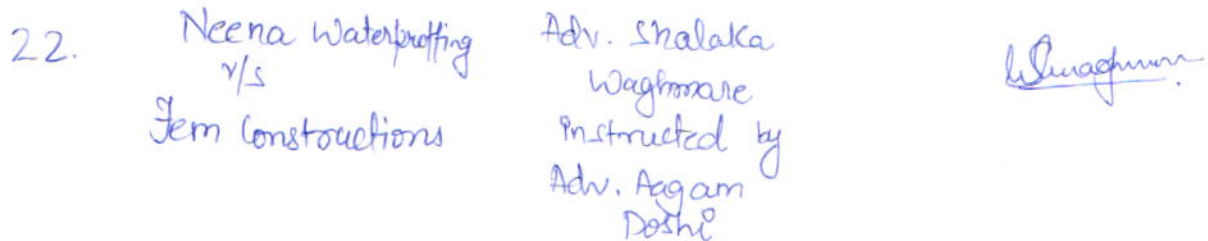 22.
Neena Waterproffing
v/s
Jem Constructions
Adv. Shalaka
Waghmare
instructed by
Adv. Aagam
Doshi